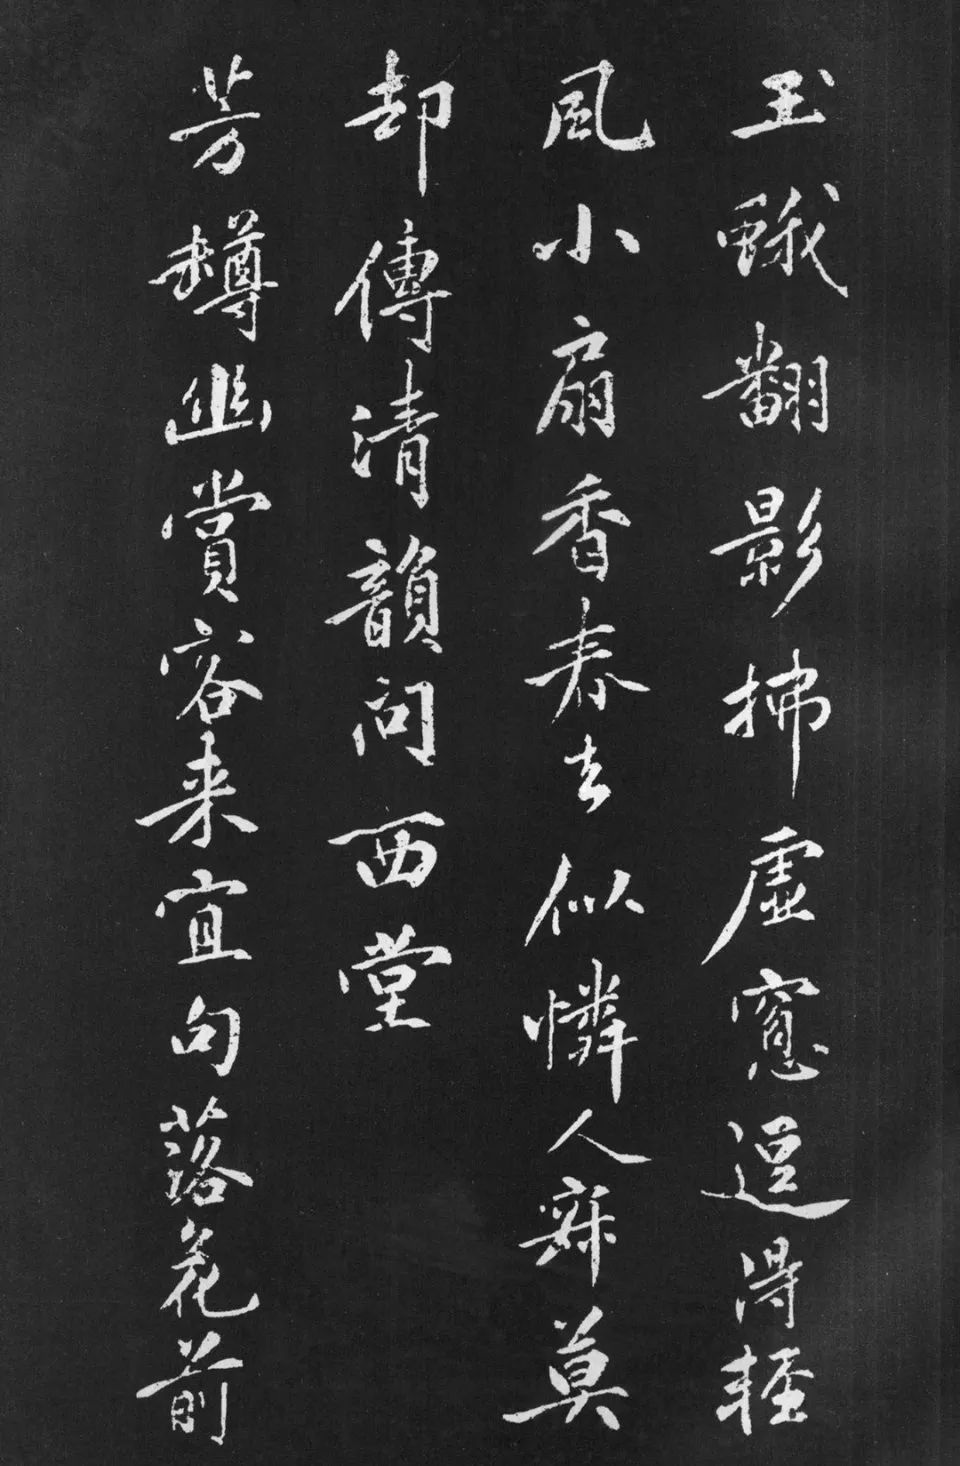 玉蛾翻影拂虛窻逞得輕
風小扇香春去似憐人寐莫
却傳清韻問西堂
芳罇幽賞客来宜句落花前